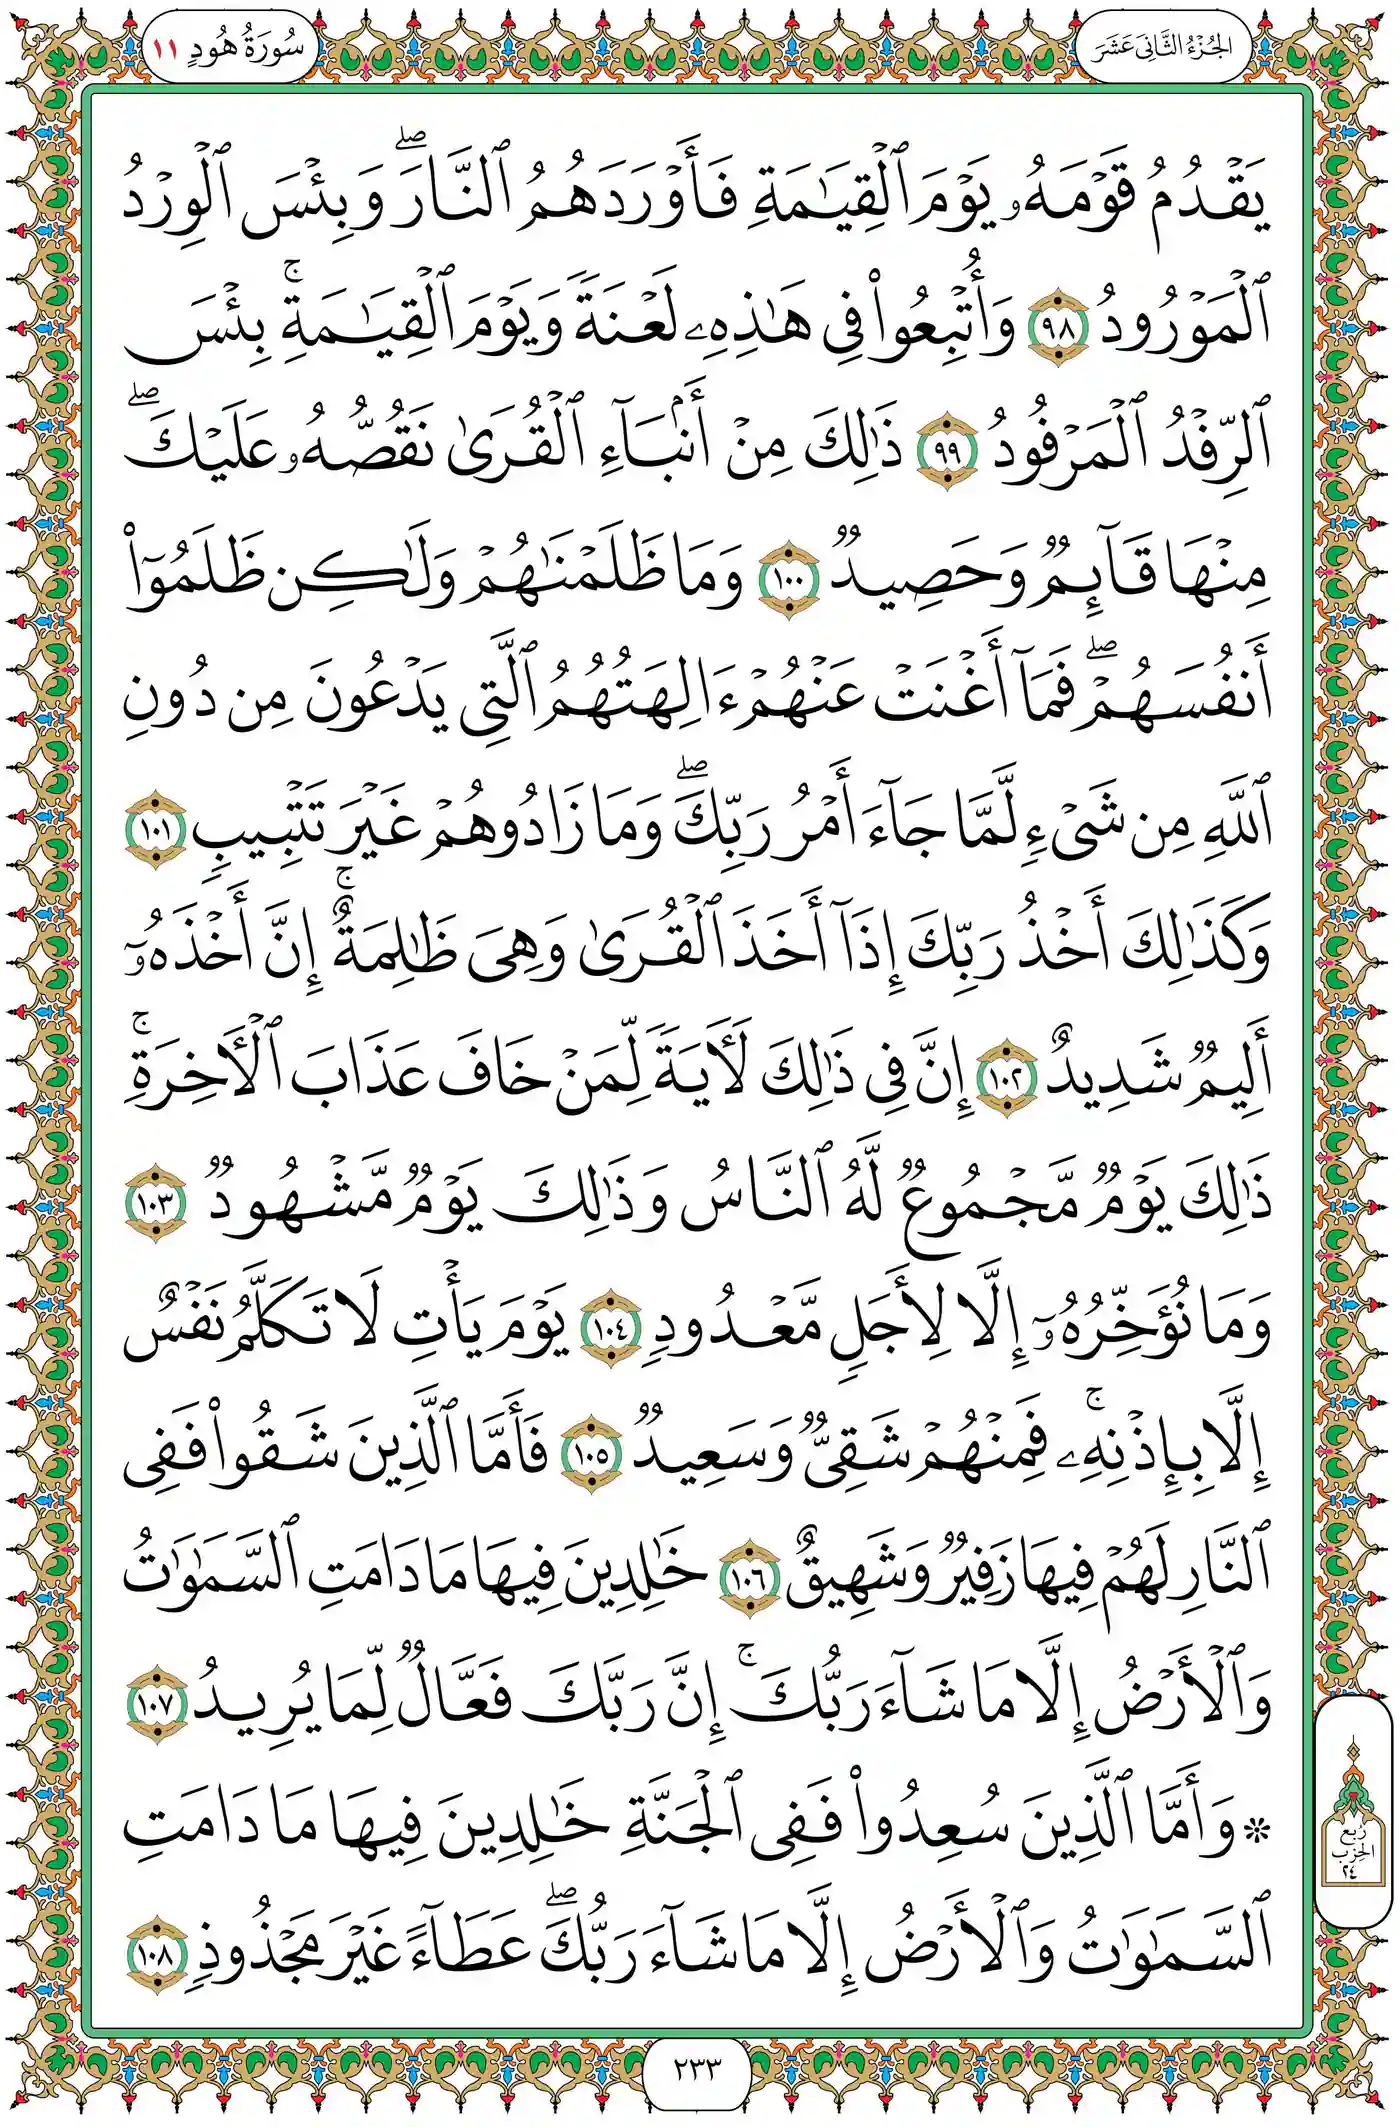 الجُزْءُ الثَّانِيَ عَشَرَ
سُورَةُ هُودٍ ١١
يَقۡدُمُ قَوۡمَهُۥ يَوۡمَ ٱلۡقِيَٰمَةِ فَأَوۡرَدَهُمُ ٱلنَّارَۖ وَبِئۡسَ ٱلۡوِرۡدُ
ٱلۡمَوۡرُودُ ٩٨ وَأُتۡبِعُواْ فِي هَٰذِهِۦ لَعۡنَةٗ وَيَوۡمَ ٱلۡقِيَٰمَةِۚ بِئۡسَ
ٱلرِّفۡدُ ٱلۡمَرۡفُودُ ٩٩ ذَٰلِكَ مِنۡ أَنۢبَآءِ ٱلۡقُرَىٰ نَقُصُّهُۥ عَلَيۡكَۖ
مِنۡهَا قَآئِمٞ وَحَصِيدٞ ١٠٠ وَمَا ظَلَمۡنَٰهُمۡ وَلَٰكِن ظَلَمُوٓاْ
أَنفُسَهُمۡۖ فَمَآ أَغۡنَتۡ عَنۡهُمۡ ءَالِهَتُهُمُ ٱلَّتِي يَدۡعُونَ مِن دُونِ
ٱللَّهِ مِن شَيۡءٖ لَّمَّا جَآءَ أَمۡرُ رَبِّكَۖ وَمَا زَادُوهُمۡ غَيۡرَ تَتۡبِيبٖ ١٠١
وَكَذَٰلِكَ أَخۡذُ رَبِّكَ إِذَآ أَخَذَ ٱلۡقُرَىٰ وَهِيَ ظَٰلِمَةٌۚ إِنَّ أَخۡذَهُۥٓ
أَلِيمٞ شَدِيدٌ ١٠٢ إِنَّ فِي ذَٰلِكَ لَأٓيَةٗ لِّمَنۡ خَافَ عَذَابَ ٱلۡأٓخِرَةِۚ
ذَٰلِكَ يَوۡمٞ مَّجۡمُوعٞ لَّهُ ٱلنَّاسُ وَذَٰلِكَ يَوۡمٞ مَّشۡهُودٞ ١٠٣
وَمَا نُؤَخِّرُهُۥٓ إِلَّا لِأَجَلٖ مَّعۡدُودٖ ١٠٤ يَوۡمَ يَأۡتِ لَا تَكَلَّمُ نَفۡسٌ
إِلَّا بِإِذۡنِهِۦۚ فَمِنۡهُمۡ شَقِيّٞ وَسَعِيدٞ ١٠٥ فَأَمَّا ٱلَّذِينَ شَقُواْ فَفِي
ٱلنَّارِ لَهُمۡ فِيهَا زَفِيرٞ وَشَهِيقٌ ١٠٦ خَٰلِدِينَ فِيهَا مَا دَامَتِ ٱلسَّمَٰوَٰتُ
وَٱلۡأَرۡضُ إِلَّا مَا شَآءَ رَبُّكَۚ إِنَّ رَبَّكَ فَعَّالٞ لِّمَا يُرِيدُ ١٠٧
۞ وَأَمَّا ٱلَّذِينَ سُعِدُواْ فَفِي ٱلۡجَنَّةِ خَٰلِدِينَ فِيهَا مَا دَامَتِ
ٱلسَّمَٰوَٰتُ وَٱلۡأَرۡضُ إِلَّا مَا شَآءَ رَبُّكَۖ عَطَآءً غَيۡرَ مَجۡذُوذٖ ١٠٨
رُبع
الحِزب
٢٤
٢٣٣